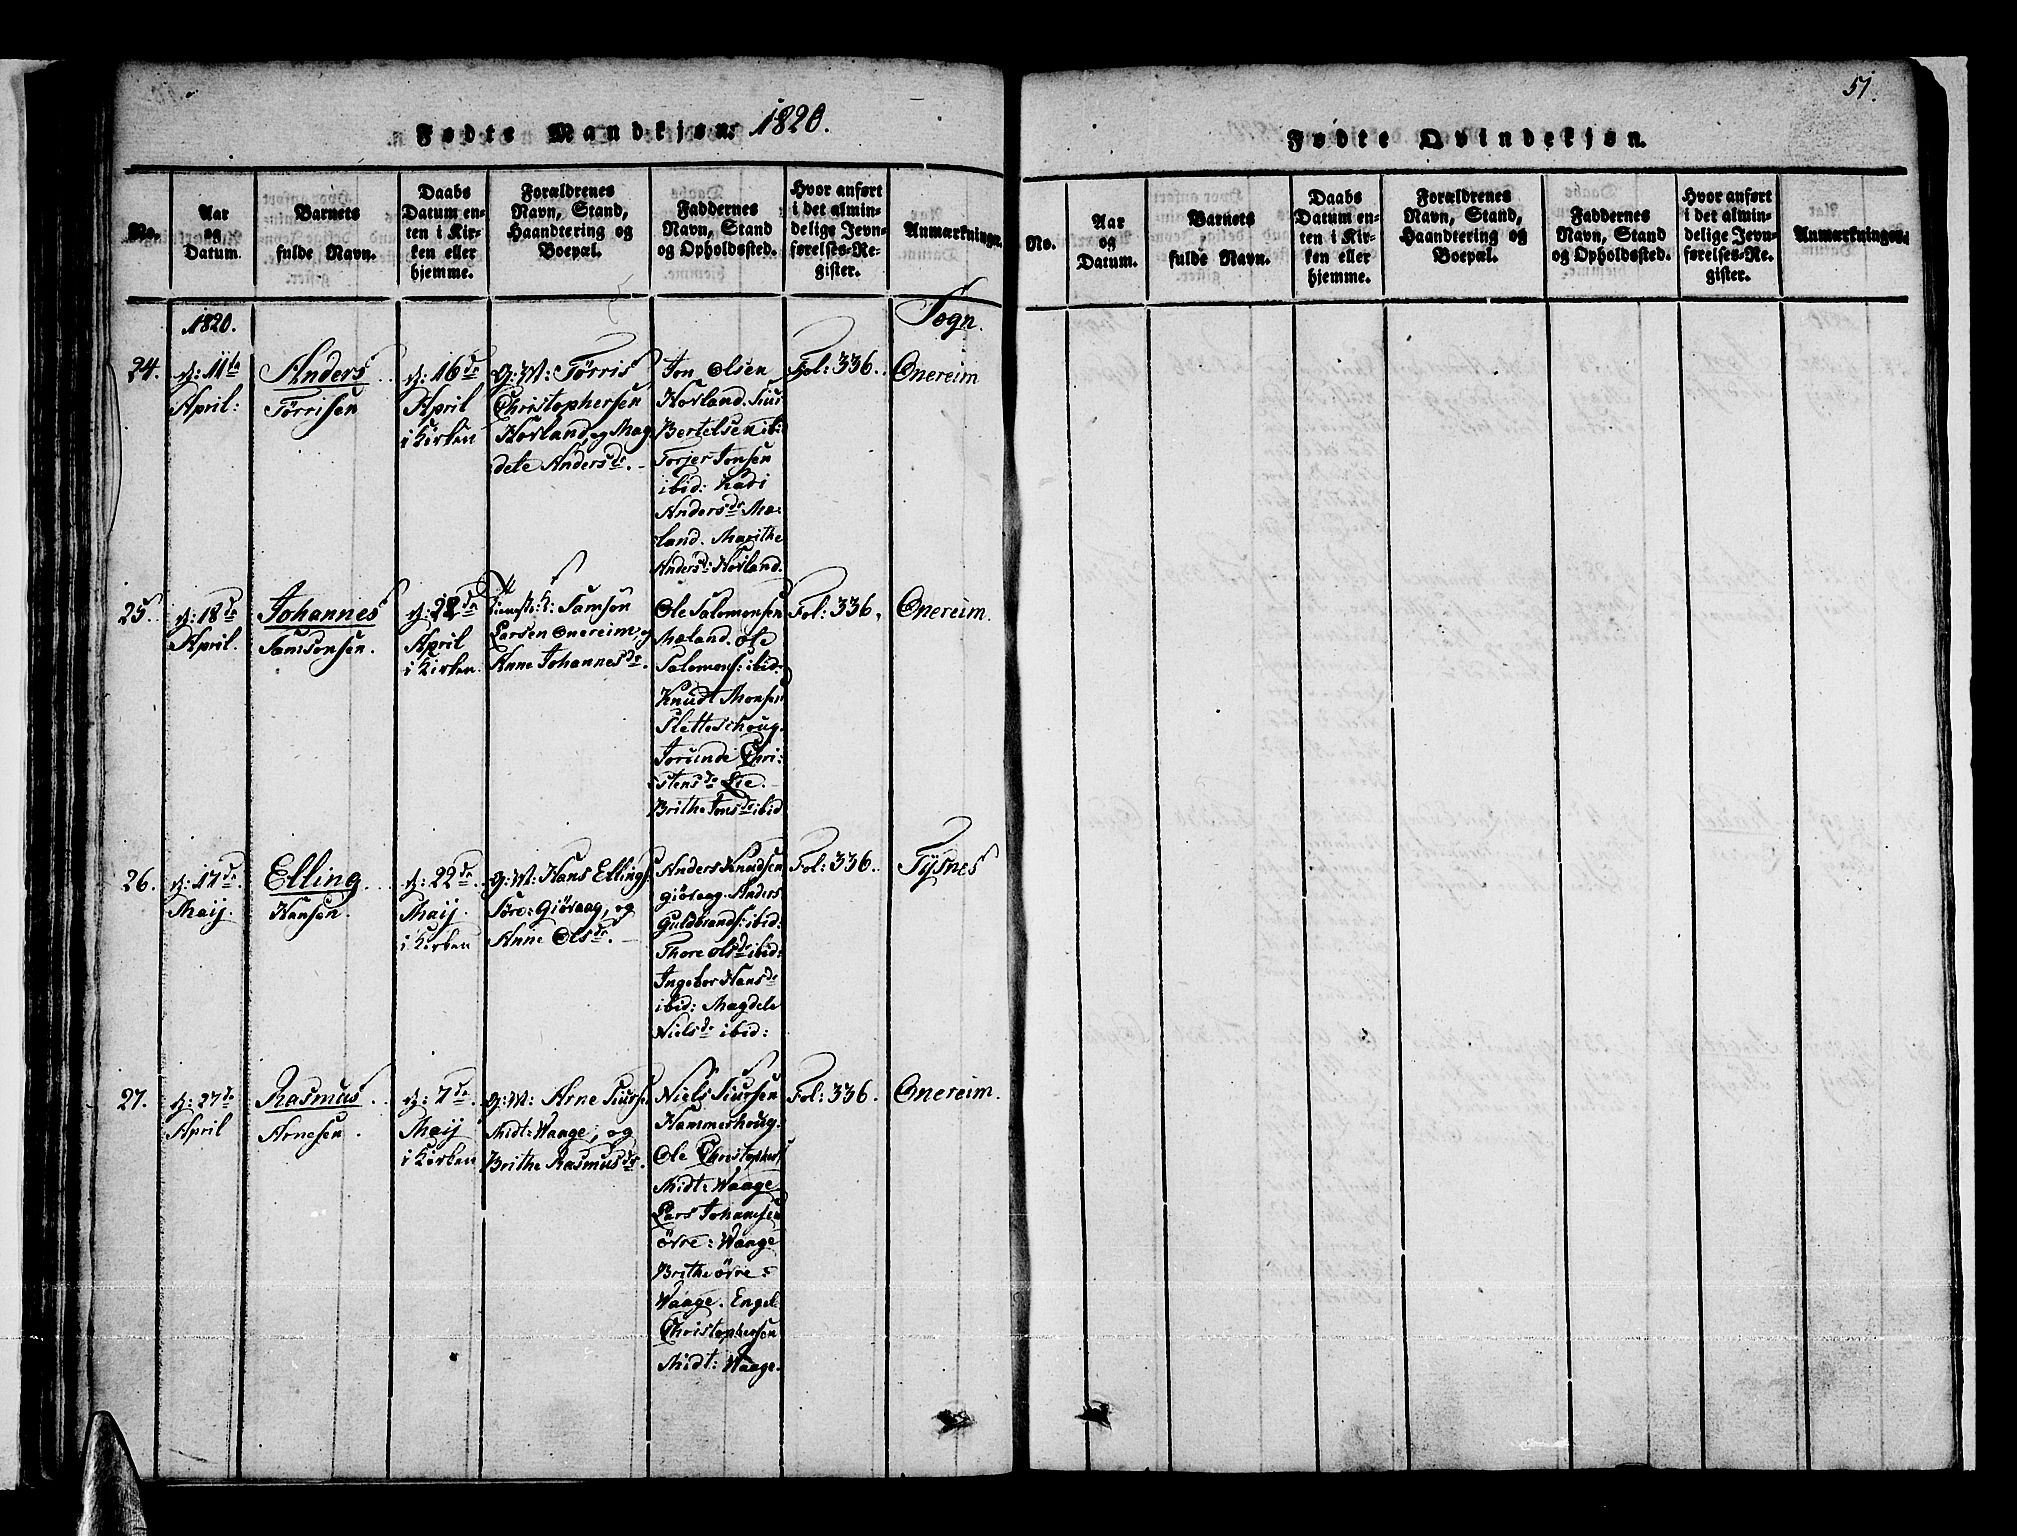 Fødte Mandkjøn. 1820.
No.
Aar
og
Datum.
Barnets
fulde Navn.
Daabs
Datum en-
ten i Kir-
ken eller
hjemme.
Forældrenes
Navn, Stand,
Haandtering og
Boepæl.
Faddernes
Navn, Stand
og Opholdssted.
Hvor anført
i det almin-
delige Jevn-
førelses-Re-
gister.
Anmærkninger.
1820.
Sogn.
24.
d: 11te
April:
Anders
Tørrisen
d: 16de
April
i Kirken
G: M: Tørris
Christophersen
Hovland, og Mag
dete Andersdr.
Jon Olsen
Hovland. Siur
Bertelsen ibi
Torjer Jonsen
ibid: Kari
Andersdr Mæ-
land. Marithe
Anders: Hovland.
Fol: 336.
Onereim
25.
d: 18de
April.
Johannes
Samsonsen.
d: 22de
April
i Kirken.
Samson
Larsen Onereim, og
Anne Johannesdr.
Ole Salomonsen
Mæland. Ole
Salomons: ibid:
Knudt Monsen
Sletteschoug.
Jorunde Chri-
stensdr Lie.
Brithe Jonsdr ibid
Fol: 336.
Onereim.
26.
d: 17de
Maij.
Elling
Hansen.
d: 22de
Maij.
i Kirken
G: M: Hans Ellings.
Søre: Giøvaag, og
Anne Olsdr.
Anders Knudsen
giøvaag. Anders
Guldbrands: ibid:
Thore Olsdr ibid:
Ingebor Hansdr
ibid: Magdele
Nielsdr ibid:
Fol: 336.
Tysnes
27.
d: 27de
April
Rasmus
Arnesen.
d: 7de
Maij
i Kirken
G: M: Arne Siurse
Midt: Waage, og
Brithe Rasmusdr.
Niels Siursen
Hammerhoug.
Ole Christophers
Midt: Waage
Lars Johannsen
övre: Waage
Brithe övre:
Waage. Engel
Christophersen
Midt: Waage.
Fol: 336.
Onereim.
51.
Fødte Qvindekjøn.
No.
Aar
og
Datum.
Barnets
fulde Navn.
Daabs
Datum en-
ten i Kir-
ken eller
hjemme.
Forældrenes
Navn, Stand,
Haandtering og
Boepæl.
Faddernes
Navn, Stand
og Opholdssted.
Hvor anført
i det almin-
delige Jevn-
førelses-Re-
gister.
Anmærkninger.